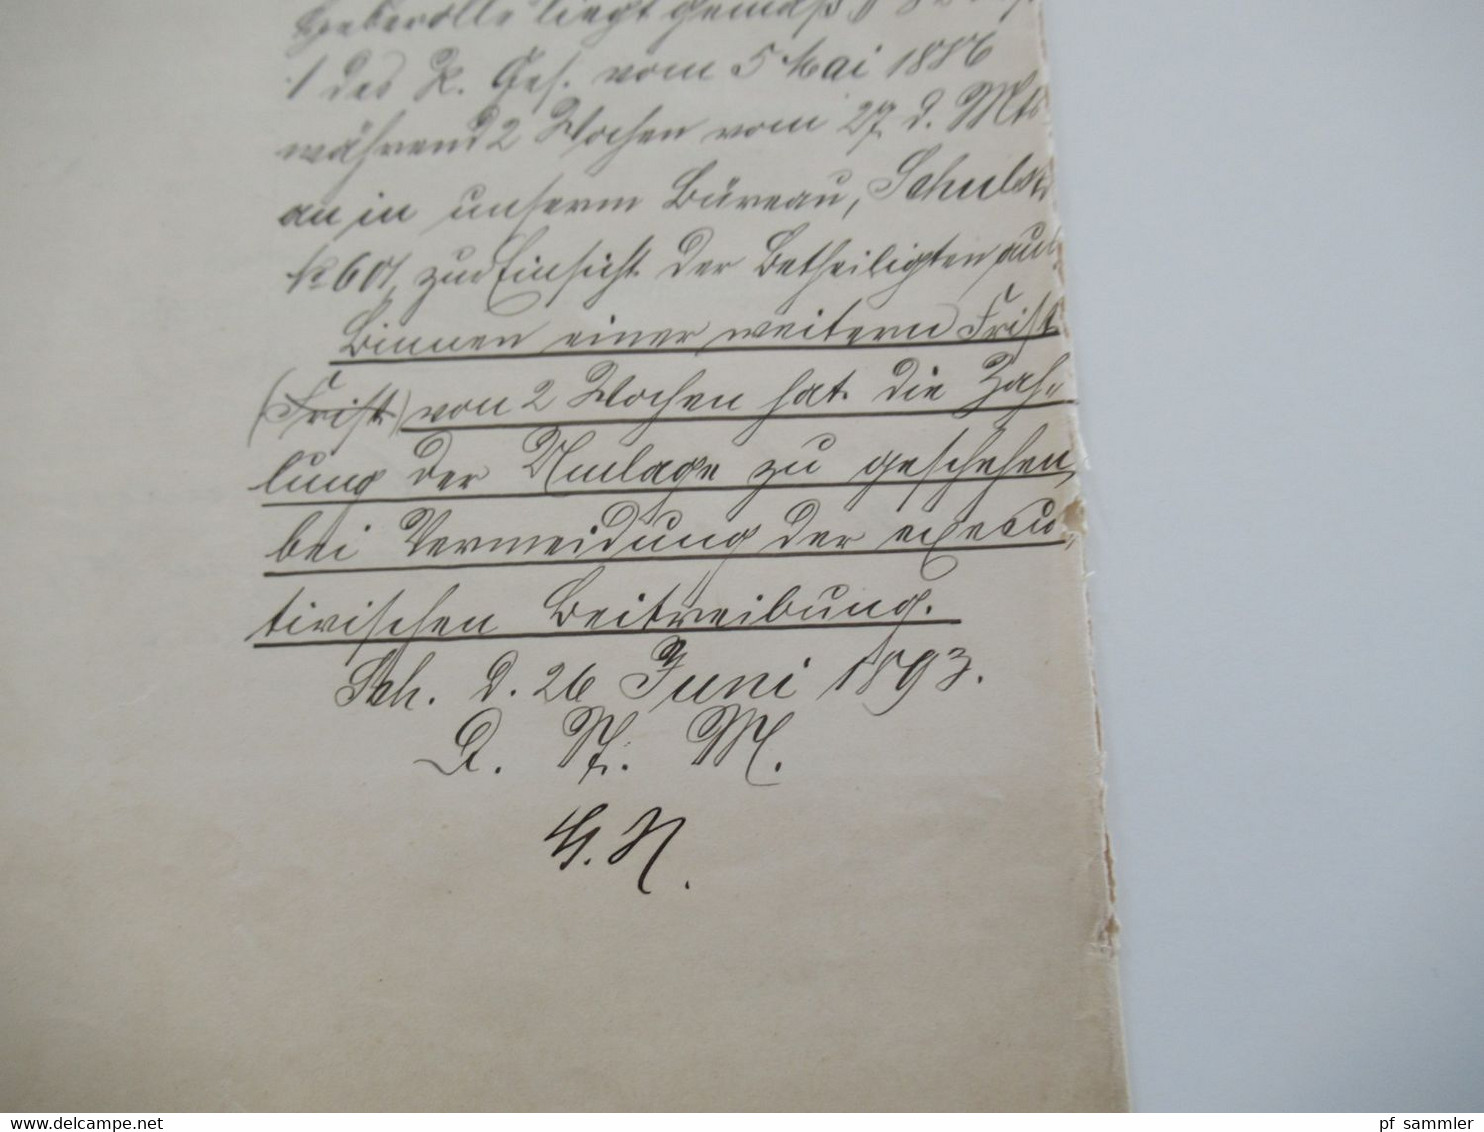 Heberolle liegt gemäß § 82 Abs.
1 des R. Ges. vom 5 Mai 1886
während 2 Wochen vom 27. d. Mts
an in unserm Büreau, Schulstr
No 60, zur Einsicht der Betheiligten auf.
Binnen einer weitern Frist
(Frist) von 2 Wochen hat die Zah-
lung der Umlage zu geschehen,
bei Vermeidung der execu-
tivischen Beitreibung.
Sch. d. 26 Juni 1893.
D. St. M.
G. N.
www.delcampe.net
pf_sammler